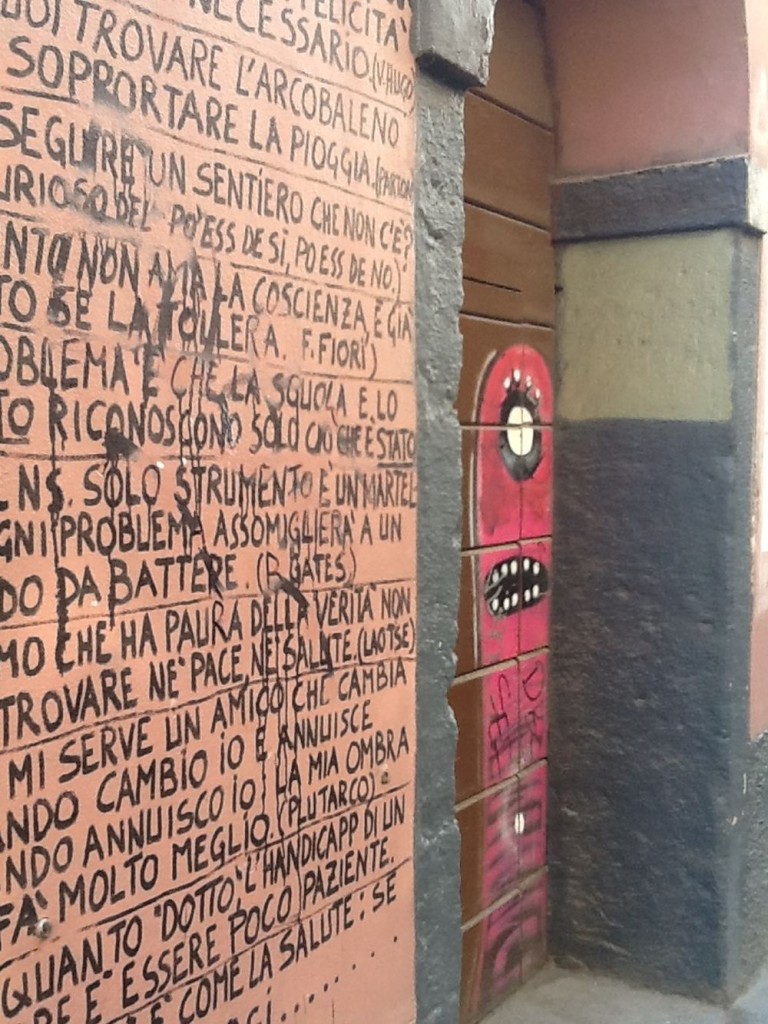 FELICITÀ
NECESSARIO. (V. HUGO)
TROVARE L'ARCOBALENO
SOPPORTARE LA PIOGGIA. (PARTON
SEGUIRE UN SENTIERO CHE NON C'È?
URIOSO DEL PO' ESS DE SI, PO ESS DE NO.)
NTO NON AMA LA COSCIENZA, E GIÀ
TO SE LA TOLLERA. F. FIORI)
OBLEMA È CHE LA SQUOLA E LO
TO RICONOSCONO SOLO CIO CHE È STATO
L NS. SOLO STRUMENTO È UN MARTEL
GNI PROBLEMA ASSOMIGLIERA' A UN
DO DA BATTERE. (B. GATES)
MO CHE HA PAURA DELLA VERITÀ NON
TROVARE NE' PACE, NE' SALUTE. (LAOTSE)
MI SERVE UN AMICO CHE CAMBIA
ANDO CAMBIO IO E ANNUISCE
NDO ANNUISCO IO; LA MIA OMBRA
FA' MOLTO MEGLIO. (PLUTARCO)
QUANTO "DOTTO", L'HANDICAPP DI UN
RE E' ESSERE POCO PAZIENTE.
E' COME LA SALUTE: SE